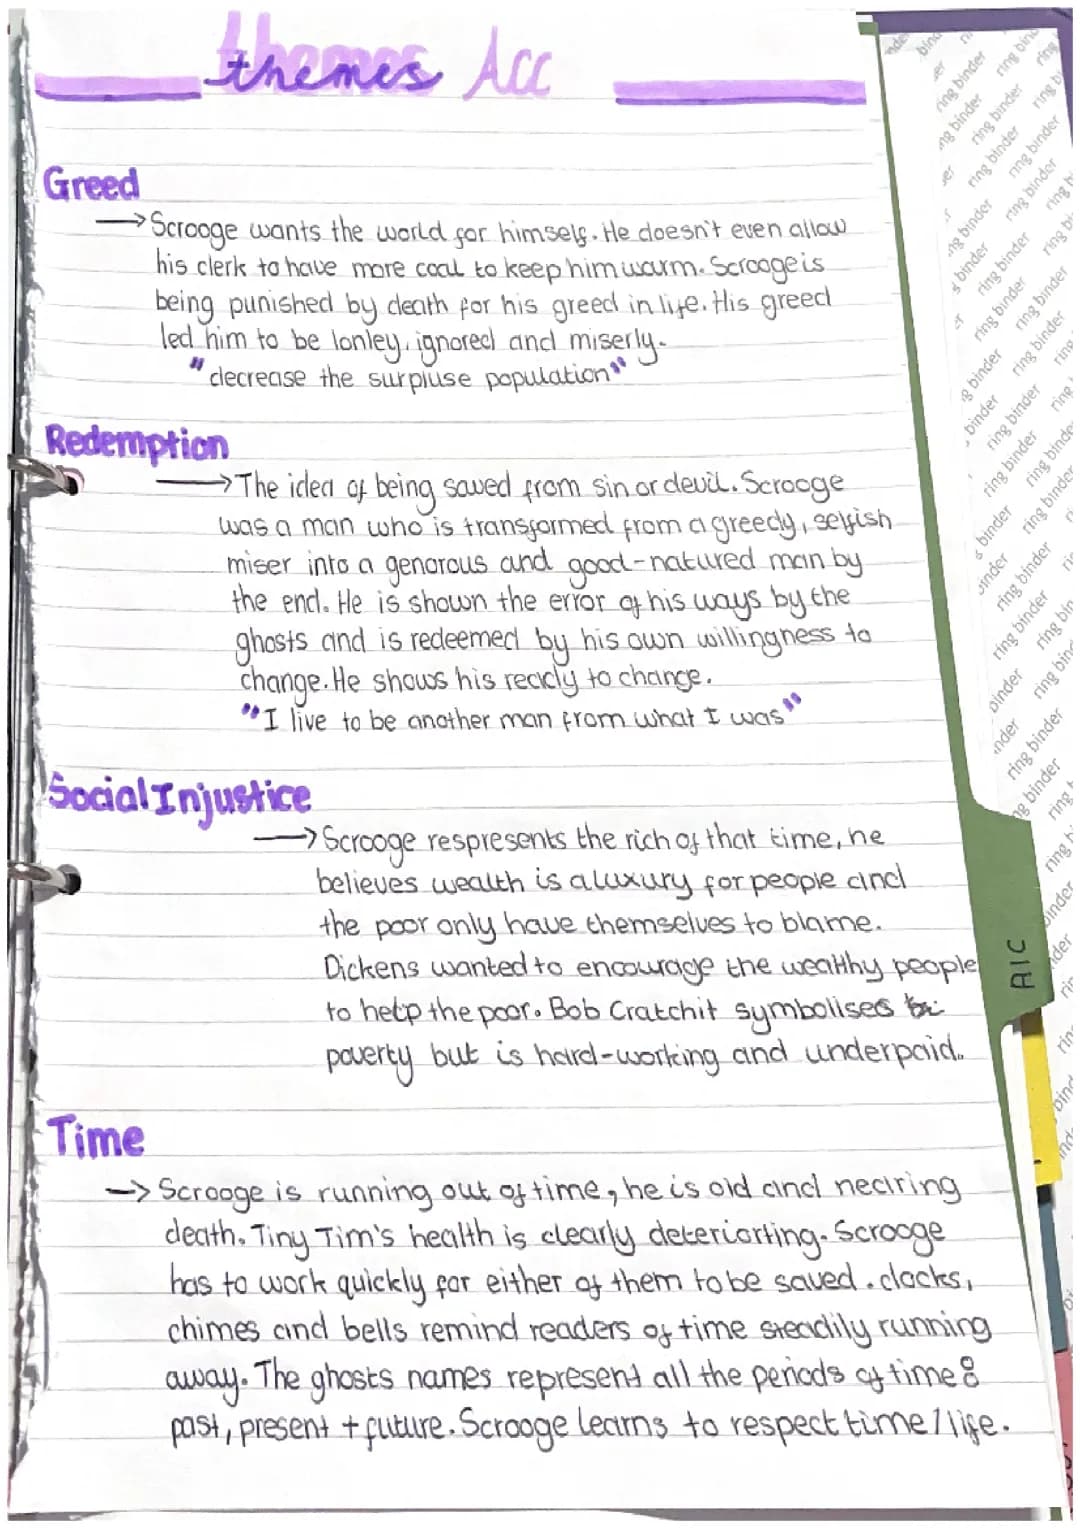 themes Acc
Greed
→ Scrooge wants the world for himself. He doesn't even allow
his clerk to have more coal to keep him warm. Scrooge is
being punished by death for his greed in life. His greed
led him to be lonley, ignored and miserly.
"decrease the surpluse population"
Redemption
→ The idea of being saved from sin or devil. Scrooge
was a man who is transformed from a greedy, selfish
miser into a genorous and good-natured man by
the end. He is shown the error of his ways by the
ghosts and is redeemed by his own willingness to
change. He shows his ready to change.
"I live to be another man from what I was"
Social Injustice
→ Scrooge respresents the rich of that time, he
believes wealth is a luxury for people and
the poor only have themselves to blame.
Dickens wanted to encourage the wealthy people
to help the poor. Bob Cratchit symbolises
poverty but is hard-working and underpaid.
Time
→ Scrooge is running out of time, he is old and nearing
death. Tiny Tim's health is clearly deteriorting. Scrooge
has to work quickly for either of them to be saved. clocks,
chimes and bells remind readers of time steadily running
away. The ghosts names represent all the periods of time:
past, present + future. Scrooge learns to respect time/life.
AIC
ring binder
ring binder
ring binder
ring binder
ring binder
ring binder
ring binder
ring binder
ring binder
ring binder
ring binder
ring binder